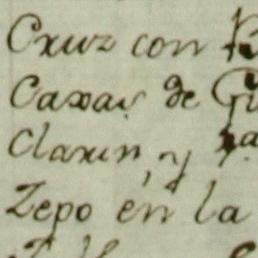 Cruz con
Caxas de
Clarin, y
Zepo en la